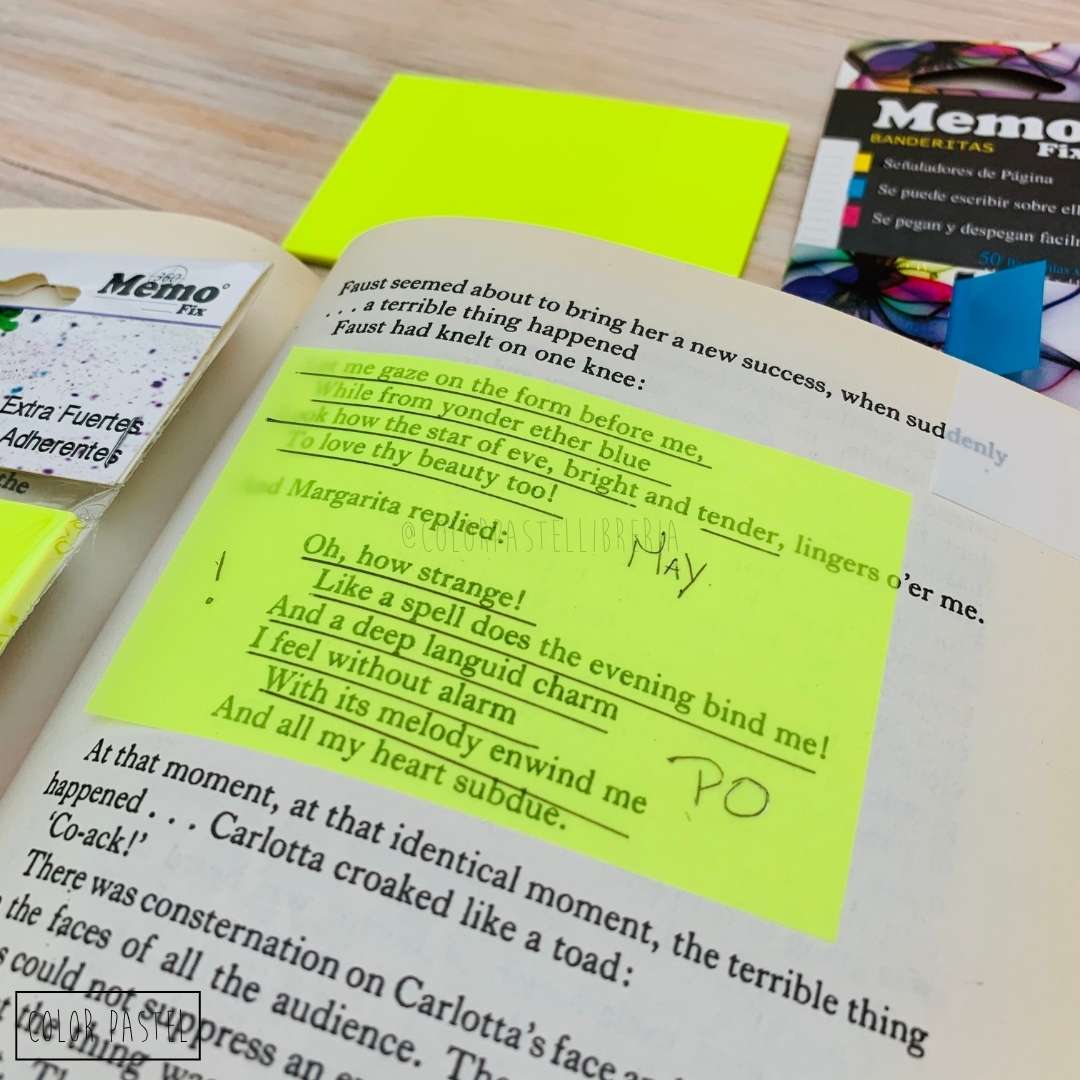 Memo
BANDERITAS
Fix
Señaladores de Página
Se puede escribir sobre
Se pegan y despegan
50
360
Memo
Fix
Extra Fuertes
Adherentes
the
Faust seemed about to bring her a new success, when suddenly
. . . a terrible thing happened
Faust had knelt on one knee:
me gaze on the form before me,
While from yonder ether blue
how the star of eve, bright and tender, lingers o'er me.
To love thy beauty too!
Margarita replied:
@COLORPASTELLIBRERIA
MAY
Oh, how strange!
!
Like a spell does the evening bind me!
And a deep languid charm
I feel without alarm
With its melody enwind me
And all my heart subdue.
PO
At that moment, at that identical moment, the terrible thing
happened . . . Carlotta croaked like a toad:
'Co-ack!'
There was consternation on Carlotta's face
the faces of all the audience.
could not suppress an
the thing
COLOR PASTEL